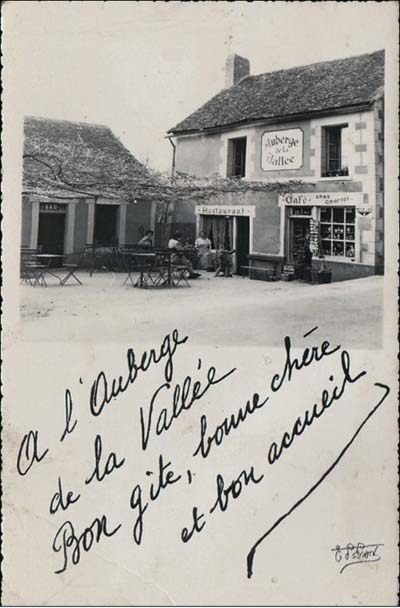 Auberge
de la
Vallée
BAR
Restaurant
Café chez Charlot
A l'Auberge
de la Vallée
Bon gite, bonne chère
et bon accueil